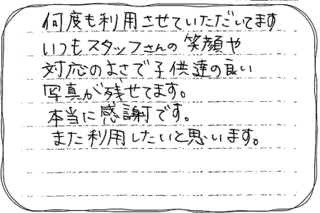 何度も利用させていただいてます
いつもスタッフさんの笑顔や
対応のよさで子供達の良い
写真が残せてます。
本当に感謝です。
また利用したいと思います。